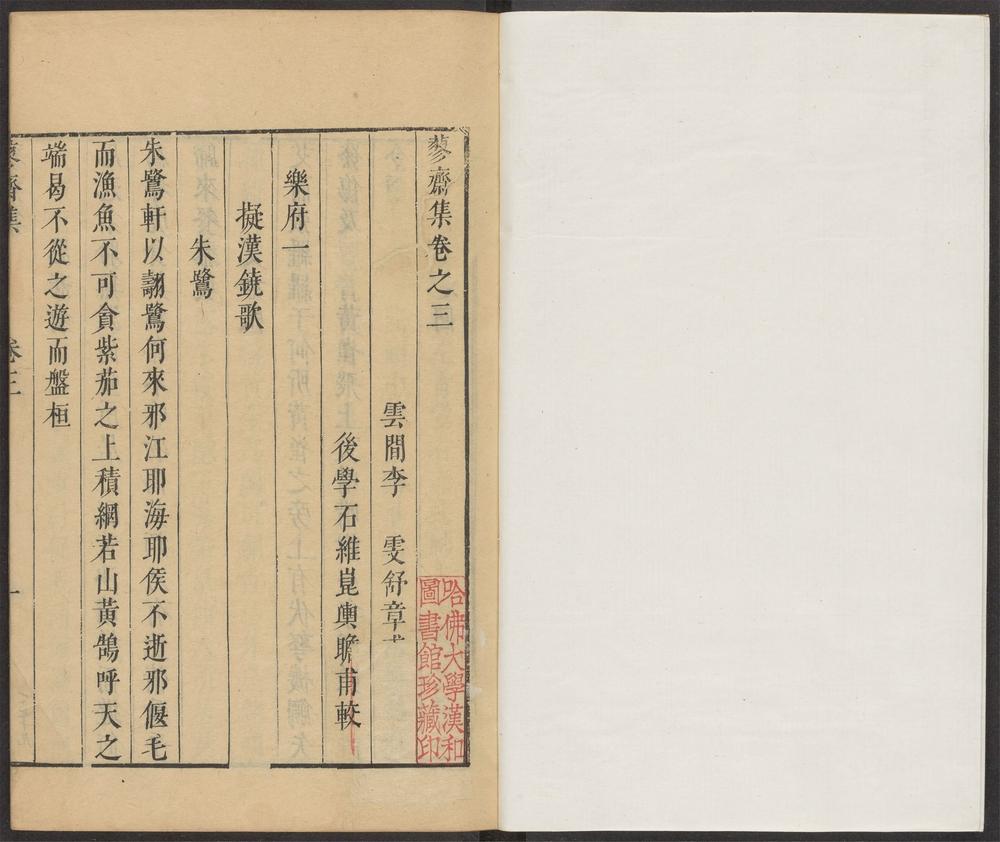 蓼齋集卷之三
雲間李　雯舒章
後學石維崑輿瞻甫較
樂府一
擬漢鐃歌
朱鷺
朱鷺軒以翿鷺何來邪江耶海耶俟不逝邪偃毛
而漁魚不可貪紫茄之上積網若山黃鵠呼天之
端曷不從之遊而盤桓
蓼齋集　卷三　一
哈佛大學漢和
圖書館珍藏印